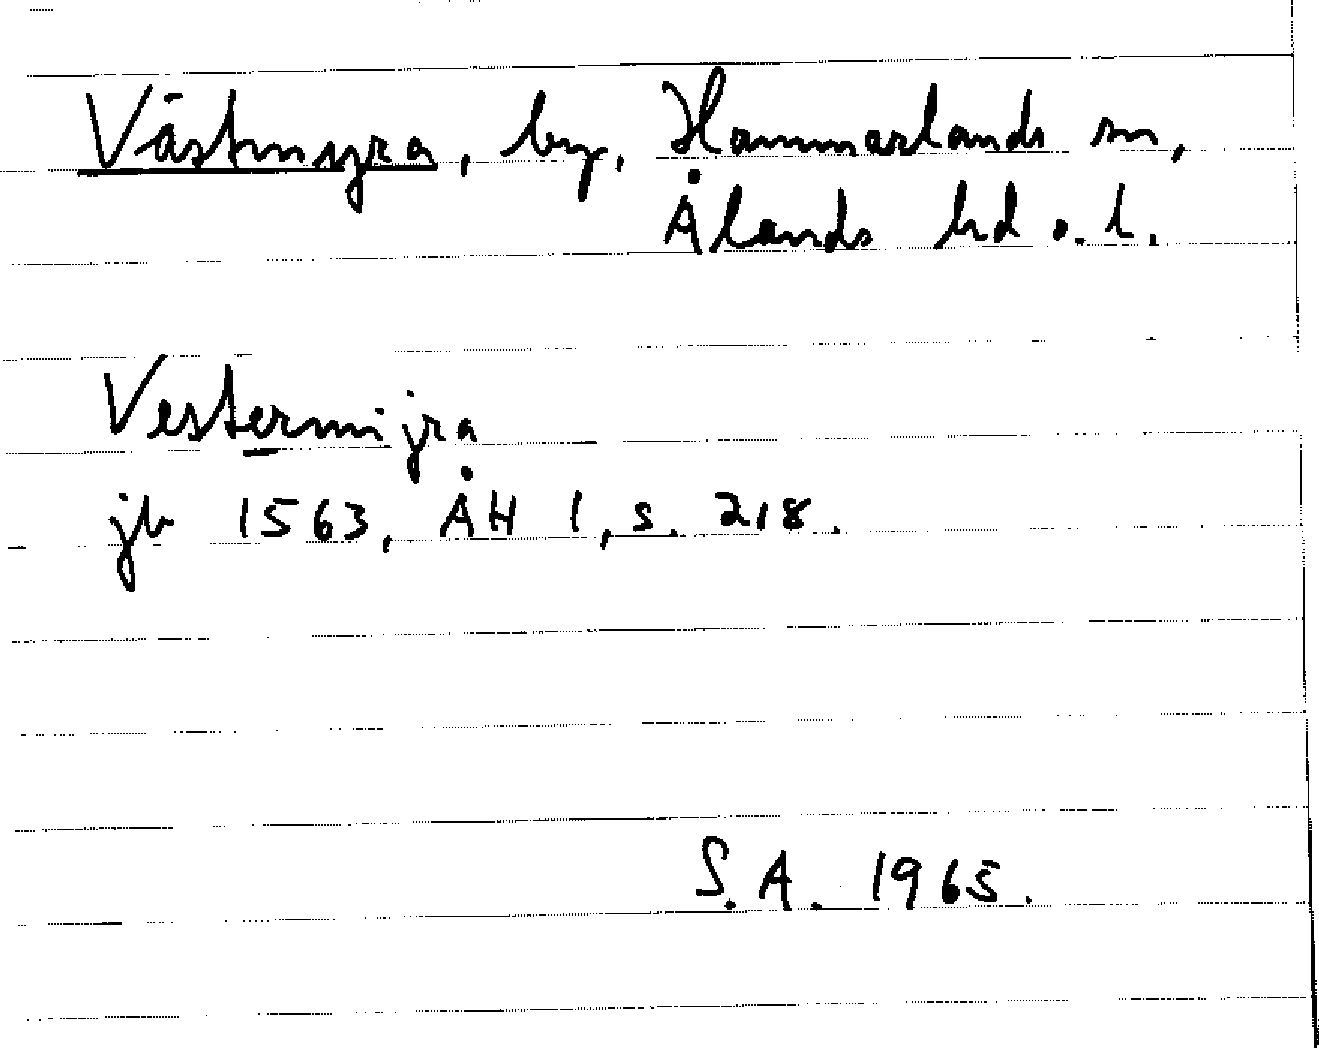 Västmyra, by, Hammarlands sn,
Ålands hd o. l.
Vestermijra
jb 1563, ÅH 1, s. 218.
S.A. 1965.